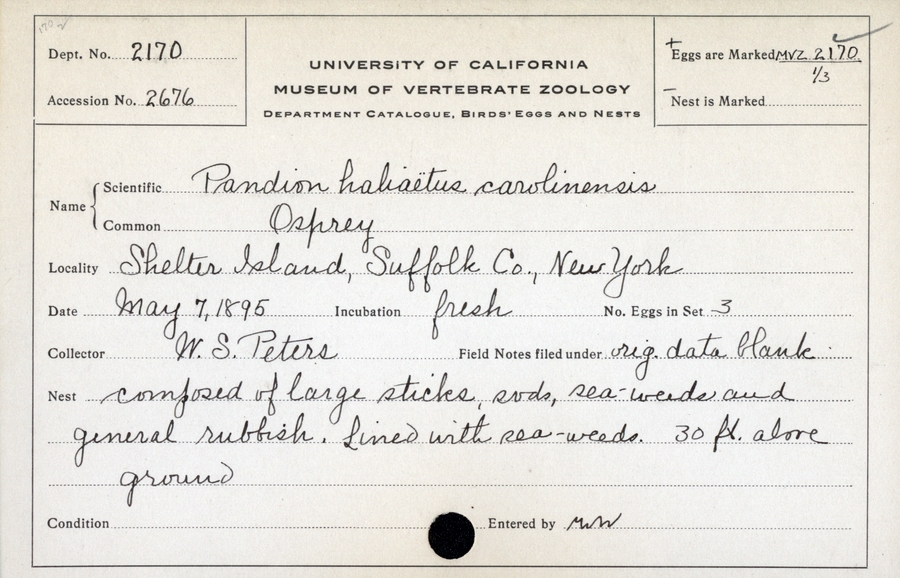 Dept. No. 2170
Accession No. 2676
UNIVERSITY OF CALIFORNIA
MUSEUM OF VERTEBRATE ZOOLOGY
DEPARTMENT CATALOGUE, BIRDS' EGGS AND NESTS
+ Eggs are Marked MVZ 2170
1/3
− Nest is Marked
Name { Scientific Pandion haliaëtus carolinensis
Common Osprey
Locality Shelter Island, Suffolk Co., New York
Date May 7, 1895 Incubation fresh No. Eggs in Set 3
Collector W. S. Peters Field Notes filed under orig. data blank
Nest composed of large sticks, sods, sea-weeds and
general rubbish. Lined with sea-weeds. 30 ft. above
ground
Condition Entered by